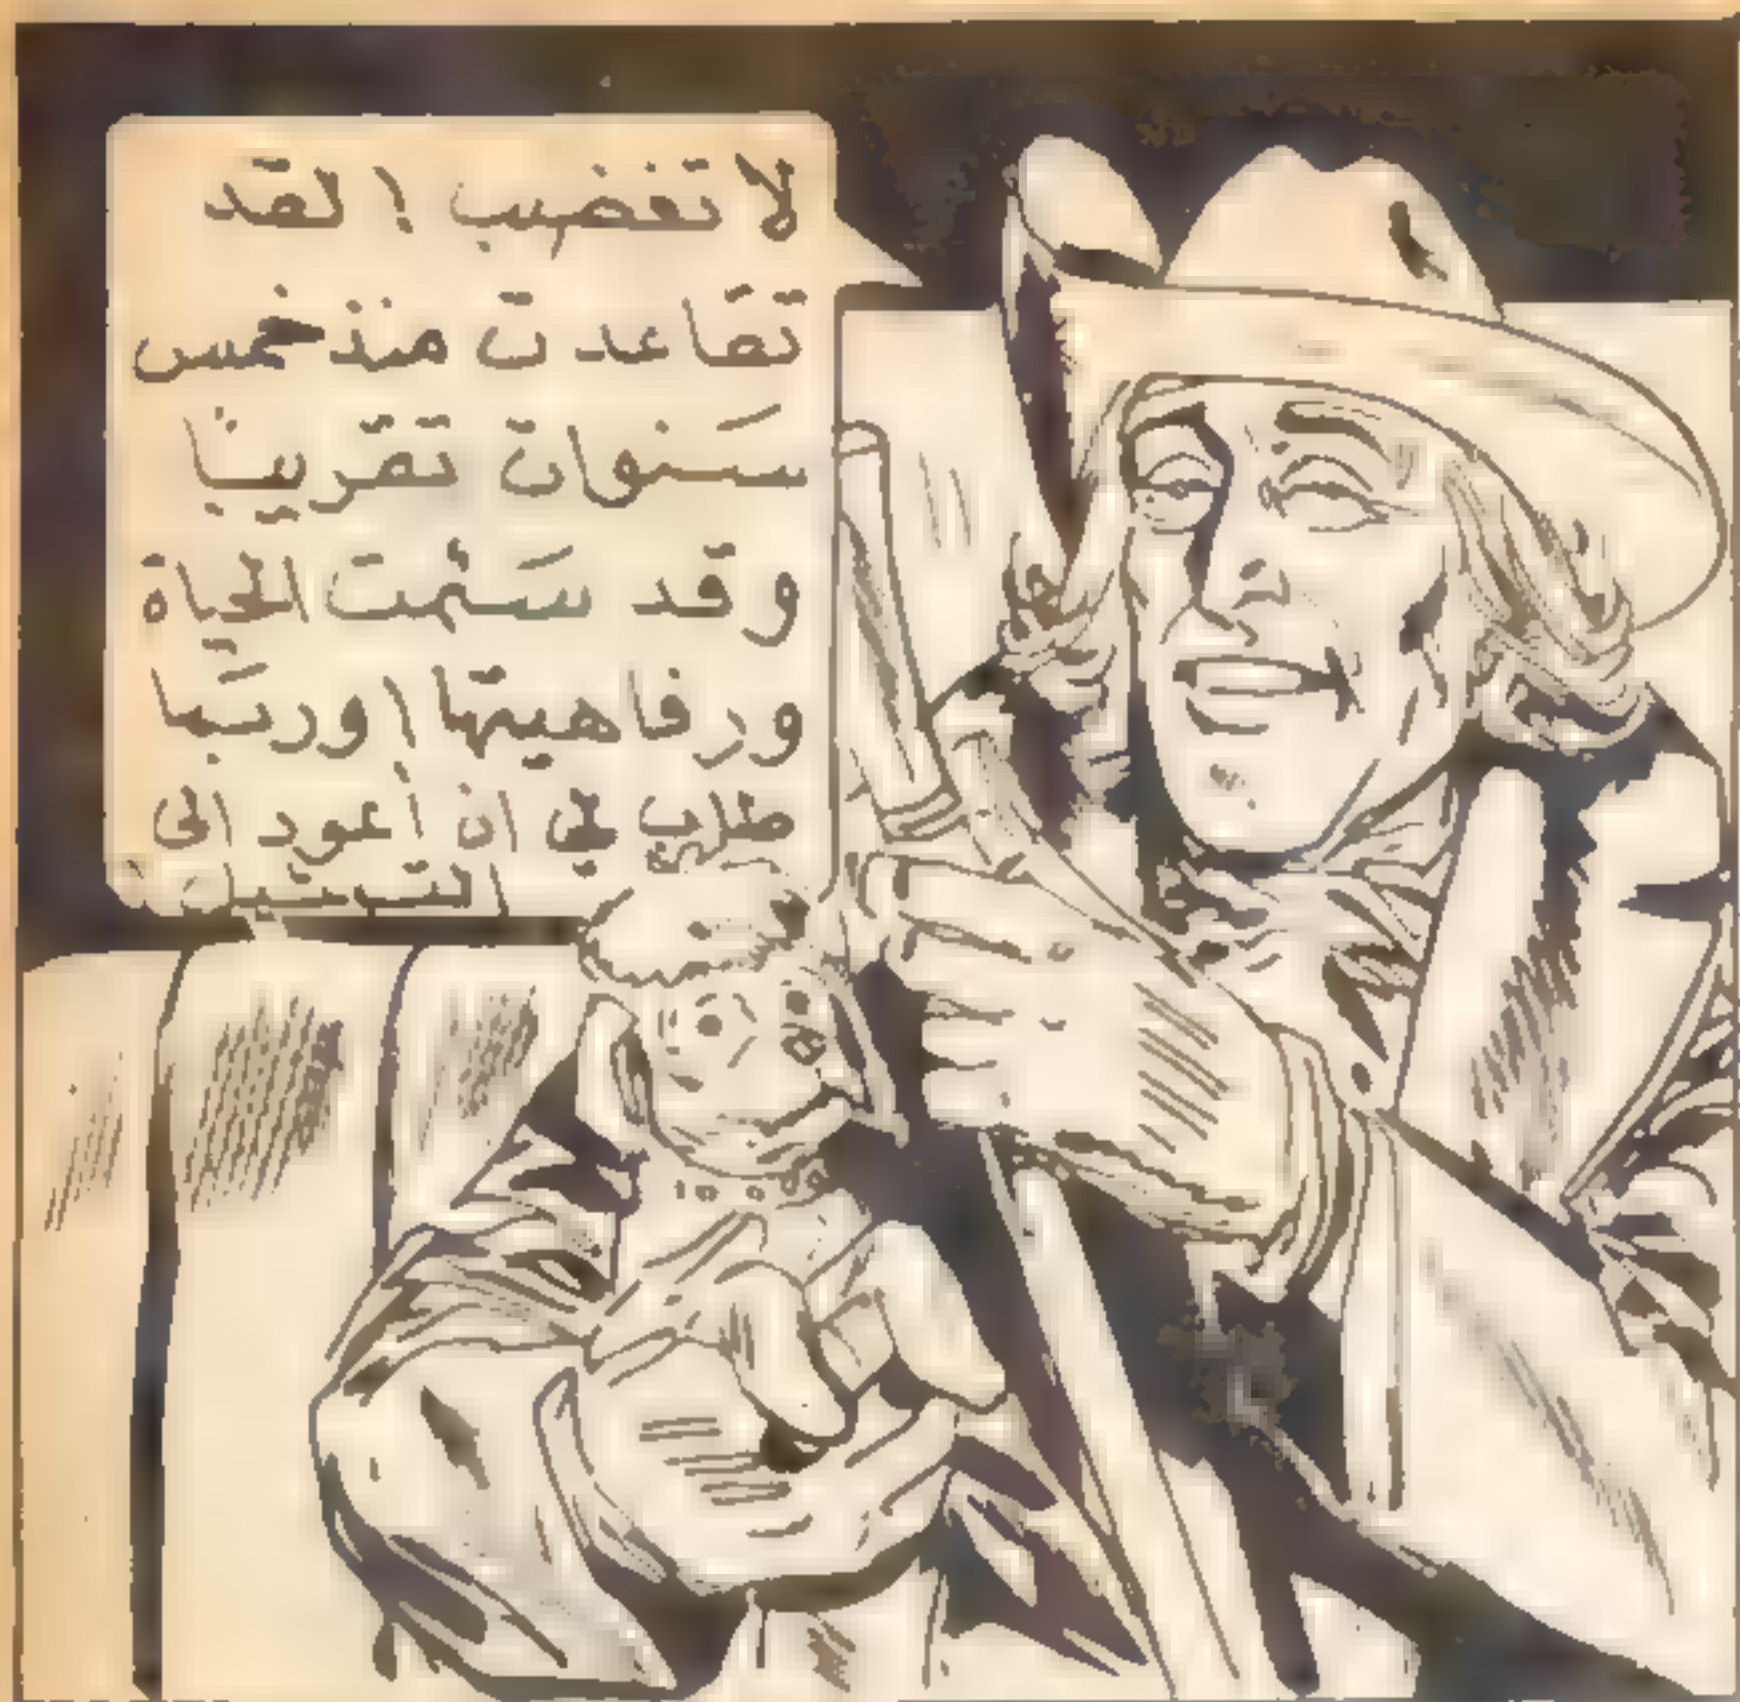 لا تغضب ! لقد
تقاعدت منذ خمس
سنوات تقريبًا
وقد سَئمت الحياة
ورفاهيتها ! وربّما
طلب لي ان أعود الى
التمثيل